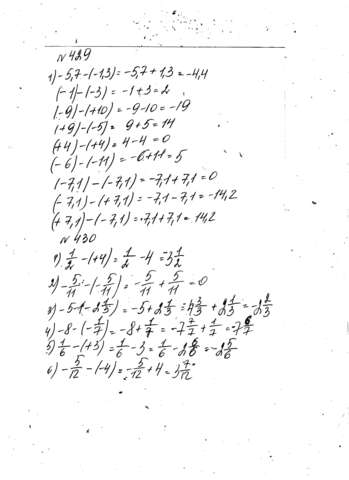 № 429
1) -5,7-(-1,3)=-5,7+1,3=-4,4
(-1)-(-3)=-1+3=2
(-9)-(+10)=-9-10=-19
(+9)-(-5)= 9+5=14
(+4)-(+4)=4-4=0
(-6)-(-11)=-6+11=5
(-7,1)-(-7,1)=-7,1+7,1=0
(-7,1)-(+7,1)=-7,1-7,1=-14,2
(+7,1)-(-7,1)=+7,1+7,1=14,2
№ 430
1) 1/2-(+4)=1/2-4=-3 1/2
2) -5/11-(-5/11)=-5/11+5/11=0
3) -5-(-2 1/3)=-5+2 1/3=-4 3/3+2 1/3=-2 2/3
4) -8-(-1/7)=-8+1/7=-7 7/7+1/7=-7 6/7
5) 1/6-(+3)=1/6-3=1/6-2 6/6=-2 5/6
6) -5/12-(-4)=-5/12+4=3 7/12